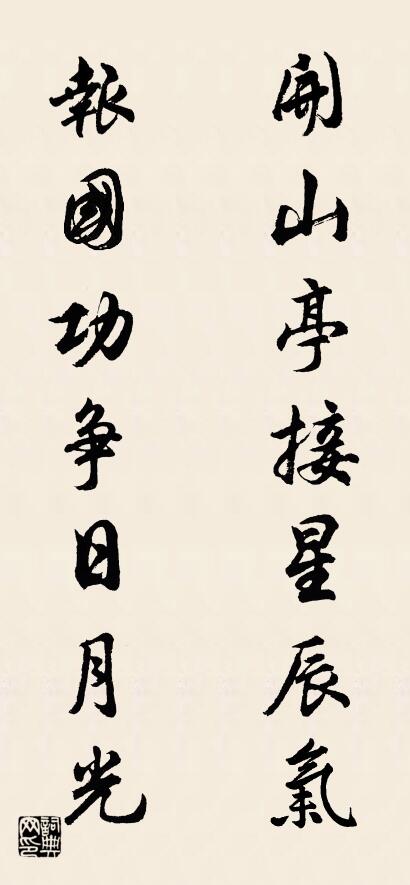 開山亭接星辰氣
報國功争日月光
詞典网印